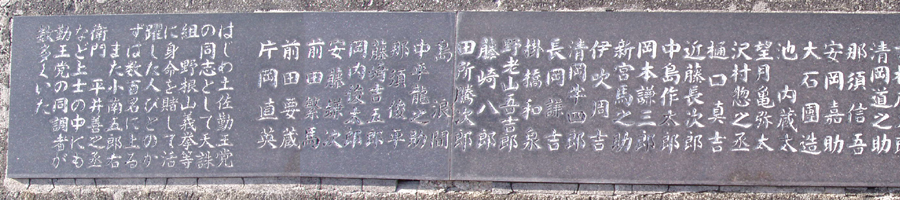 清岡道之助
那須信吾
安岡嘉助
大石團造
池内蔵太
望月亀弥太
沢村惣之丞
樋口真吉
近藤長次郎
中島作太郎
岡本謙三郎
新宮馬之助
伊吹周吉
清岡半四郎
長岡謙吉
掛橋和泉
野老山吾吉郎
藤崎八郎
田所騰次郎
島浪間
中平龍之助
那須俊平
藤崎吉五郎
岡内俊太郎
安藤鎌次
前田繁馬
前田要蔵
片岡直英
はじめ土佐勤王党
の同志として天誅
組、野根山義挙等
に身命を賭して活
躍した人びとのか
ずは数百名に上る
また小南五郎右
衛門 平井善之丞
など上士の中にも
勤王党の同調者が
数多くいた